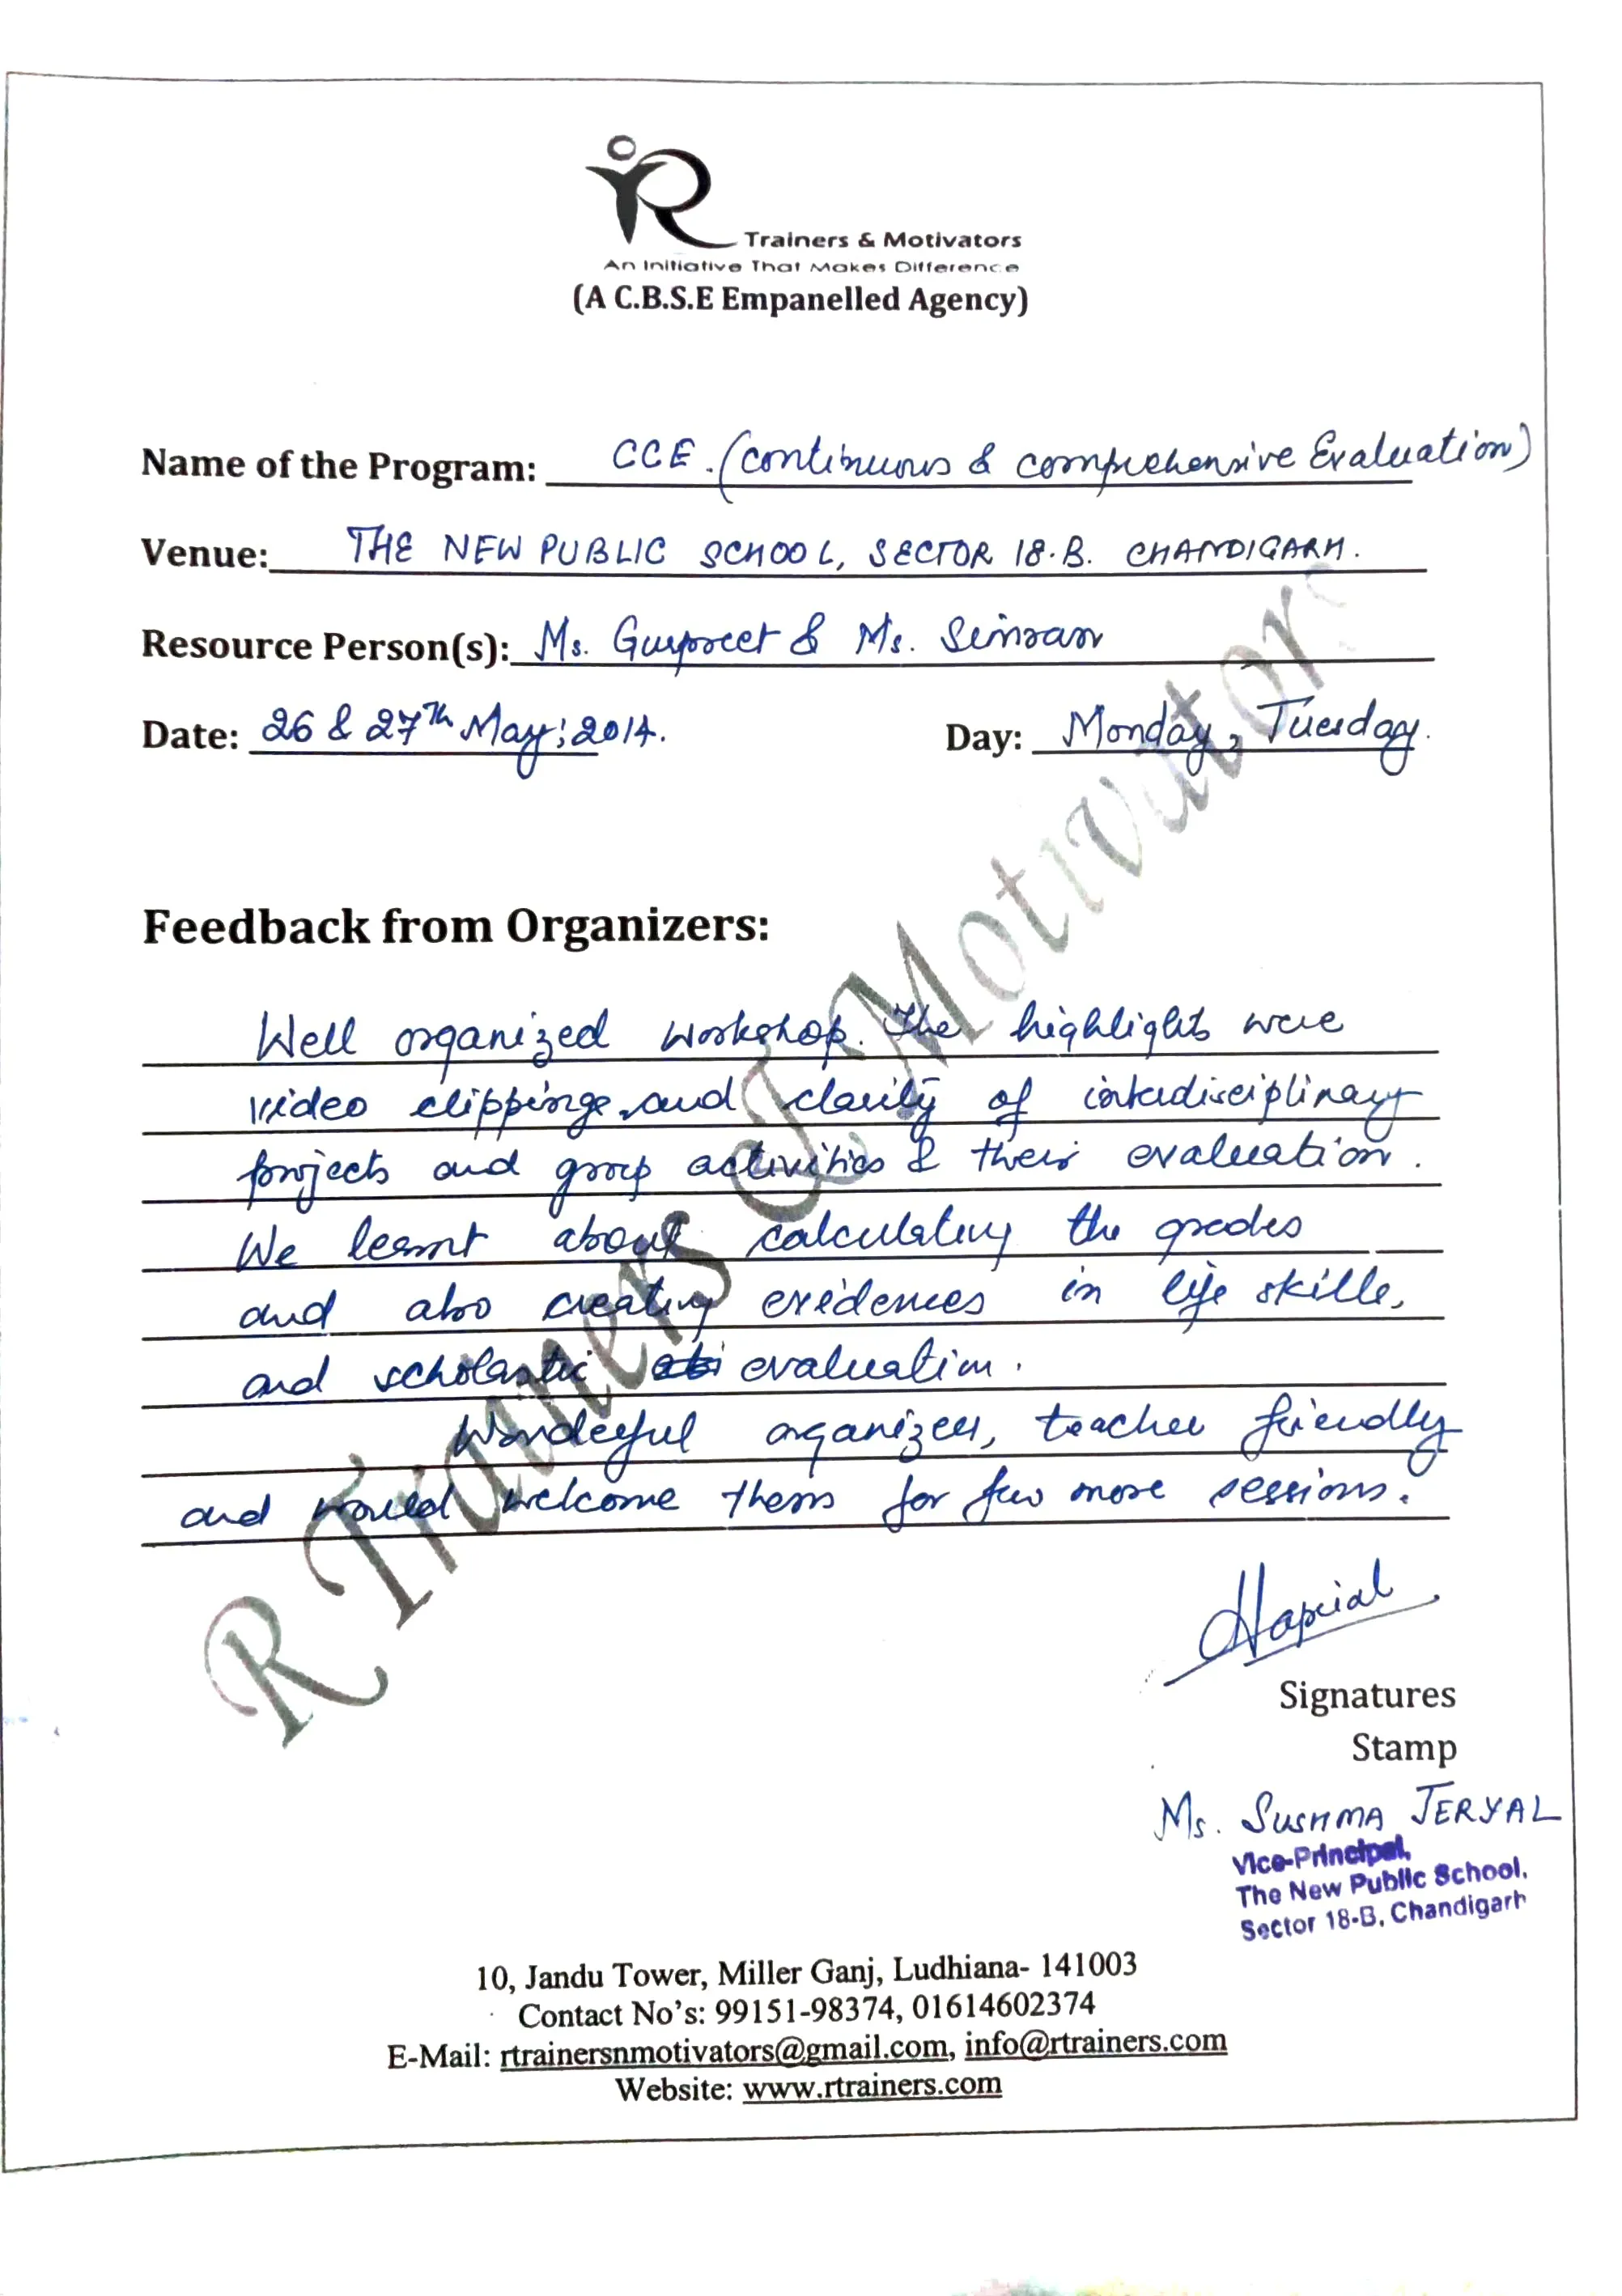 R
Trainers & Motivators
An Initiative That Makes Difference
(A C.B.S.E Empanelled Agency)
Name of the Program: CCE. (continuous & comprehensive Evaluation)
Venue: THE NEW PUBLIC SCHOOL, SECTOR 18-B. CHANDIGARH.
Resource Person(s): Ms. Gurpreet & Ms. Simran
Date: 26 & 27th May, 2014. Day: Monday, Tuesday.
Feedback from Organizers:
Well organized workshop. The highlights were
video clippings and clarity of interdisciplinary
projects and group activities & their evaluation.
We learnt about calculating the grades
and also creating evidences in life skills,
and scholastic evaluation.
Wonderful organizers, teacher friendly
and would welcome them for few more sessions.
R Trainers & Motivators
Signatures
Stamp
Ms. SUSHMA JERYAL
Vice-Principal,
The New Public School,
Sector 18-B, Chandigarh
10, Jandu Tower, Miller Ganj, Ludhiana- 141003
Contact No's: 99151-98374, 01614602374
E-Mail: rtrainersnmotivators@gmail.com, info@rtrainers.com
Website: www.rtrainers.com